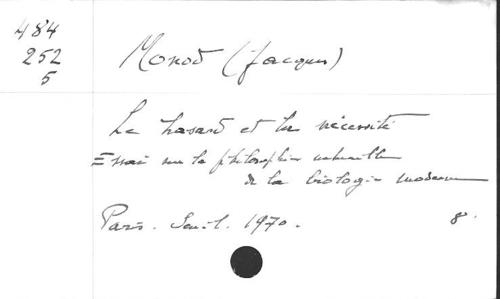 484
252
5
Monod (Jacques)
Le hasard et la nécessité
Essai sur la philosophie naturelle
de la biologie moderne
Paris. Seuil. 1970. 8°